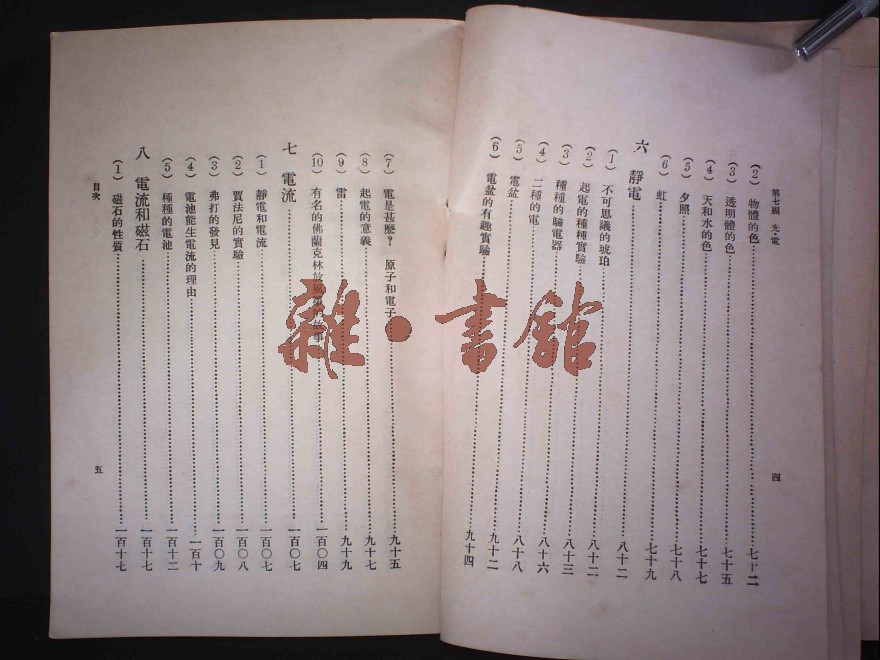 第七編 光·電
(2) 物體的色……七十二
(3) 透明體的色……七十五
(4) 天和水的色……七十七
(5) 夕照……七十八
(6) 虹……七十九
六 靜電……八十二
(1) 不可思議的琥珀……八十二
(2) 起電的種種實驗……八十二
(3) 種種的驗電器……八十三
(4) 二種的電……八十六
(5) 電盆……八十八
(6) 電盆的有趣實驗……九十二
九十四
四
(7) 電是甚麼? 原子和電子……九十五
(8) 起電的意義……九十七
(9) 雷……九十九
(10) 有名的佛蘭克林放風箏的故事……一百〇四
七 電流……一百〇七
(1) 靜電和電流……一百〇七
(2) 賈法尼的實驗……一百〇八
(3) 弗打的發見……一百〇九
(4) 電池能生電流的理由……一百十
(5) 種種的電池……一百十二
八 電流和磁石……一百十七
(1) 磁石的性質……一百十七
目次
五
雜·書館